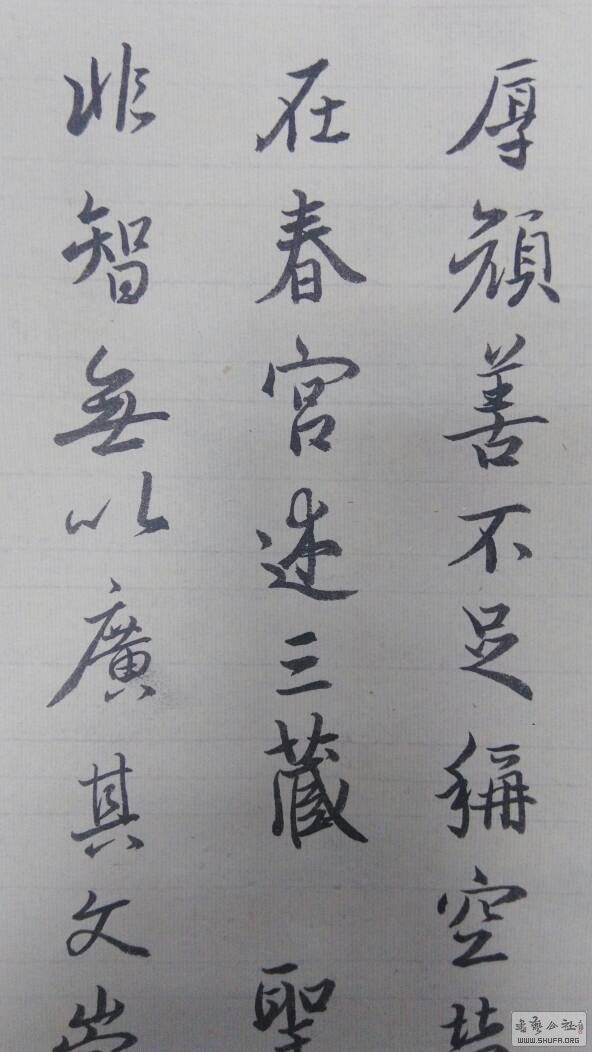 厚顔善不足稱空
在春宮述三藏 聖
非智無以廣其文崇
WWW.SHUFA.ORG